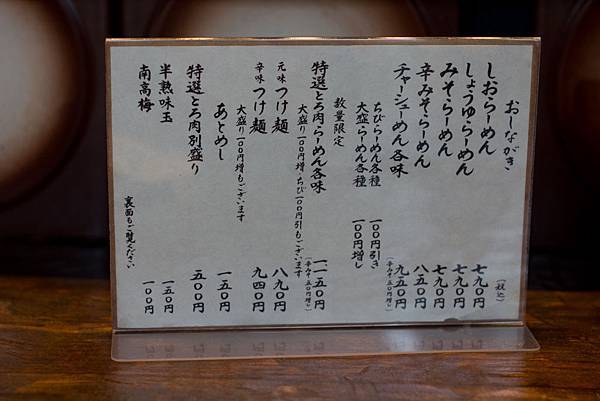 おしながき
(税込)
しおらーめん 七九〇円
しょうゆらーめん 七九〇円
みそらーめん 七九〇円
辛みそらーめん 八五〇円
チャーシューめん各味 九五〇円
(辛みそ五〇円増し)
ちびらーめん各種 一〇〇円引き
大盛らーめん各種 一〇〇円増し
数量限定
特選とろ肉らーめん各味 一一五〇円
(辛みそ五〇円増し)
大盛り一〇〇円増・ちび一〇〇円引もございます
元味つけ麺 八九〇円
辛味つけ麺 九四〇円
大盛り一〇〇円増もございます
あとめし 一五〇円
特選とろ肉別盛り 五〇〇円
半熟味玉 一五〇円
南高梅 一〇〇円
裏面もご覧ください